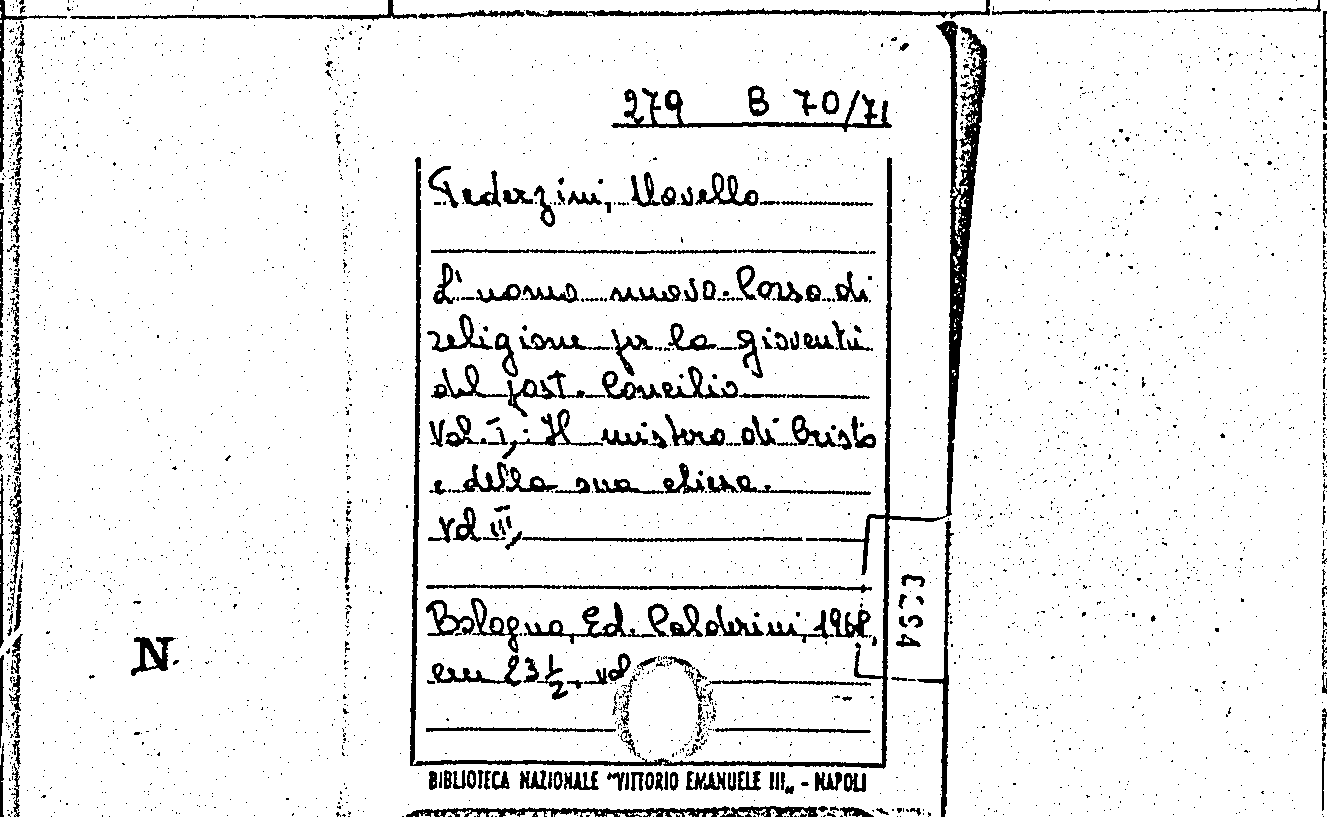 279 B 70/71
Federzini, Novello
L'uomo nuovo. Corso di
religione per la gioventù
del post. Concilio
Vol. I,: Il mistero di Cristo
e della sua chiesa.
Vol III,
Bologna, Ed. Calderini, 1968,
cm 23 1/2, vol
N
BIBLIOTECA NAZIONALE "VITTORIO EMANUELE III„ - NAPOLI